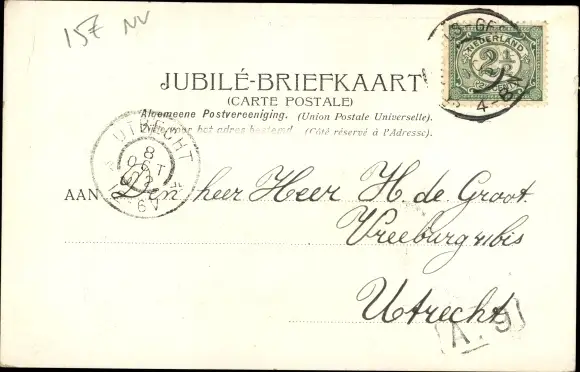 157 NV
NEDERLAND
2½
JUBILÉ-BRIEFKAART
(CARTE POSTALE)
Algemeene Postvereeniging. (Union Postale Universelle).
Zijde voor het adres bestemd. (Côté réservé à l'Adresse).
UTRECHT
8
OCT
AAN Den heer Heer H. de Groot.
Vreeburg bis
Utrecht
A. 9